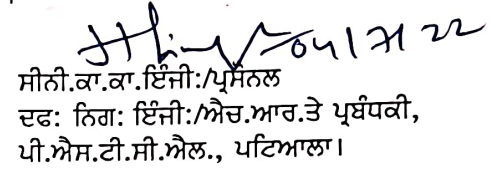 04/7/22
ਸੀਨੀ.ਕਾ.ਕਾ.ਇੰਜੀ:/ਪ੍ਰਸੋਨਲ
ਦਫ: ਨਿਗ: ਇੰਜੀ:/ਐਚ.ਆਰ.ਤੇ ਪ੍ਰਬੰਧਕੀ,
ਪੀ.ਐਸ.ਟੀ.ਸੀ.ਐਲ., ਪਟਿਆਲਾ।